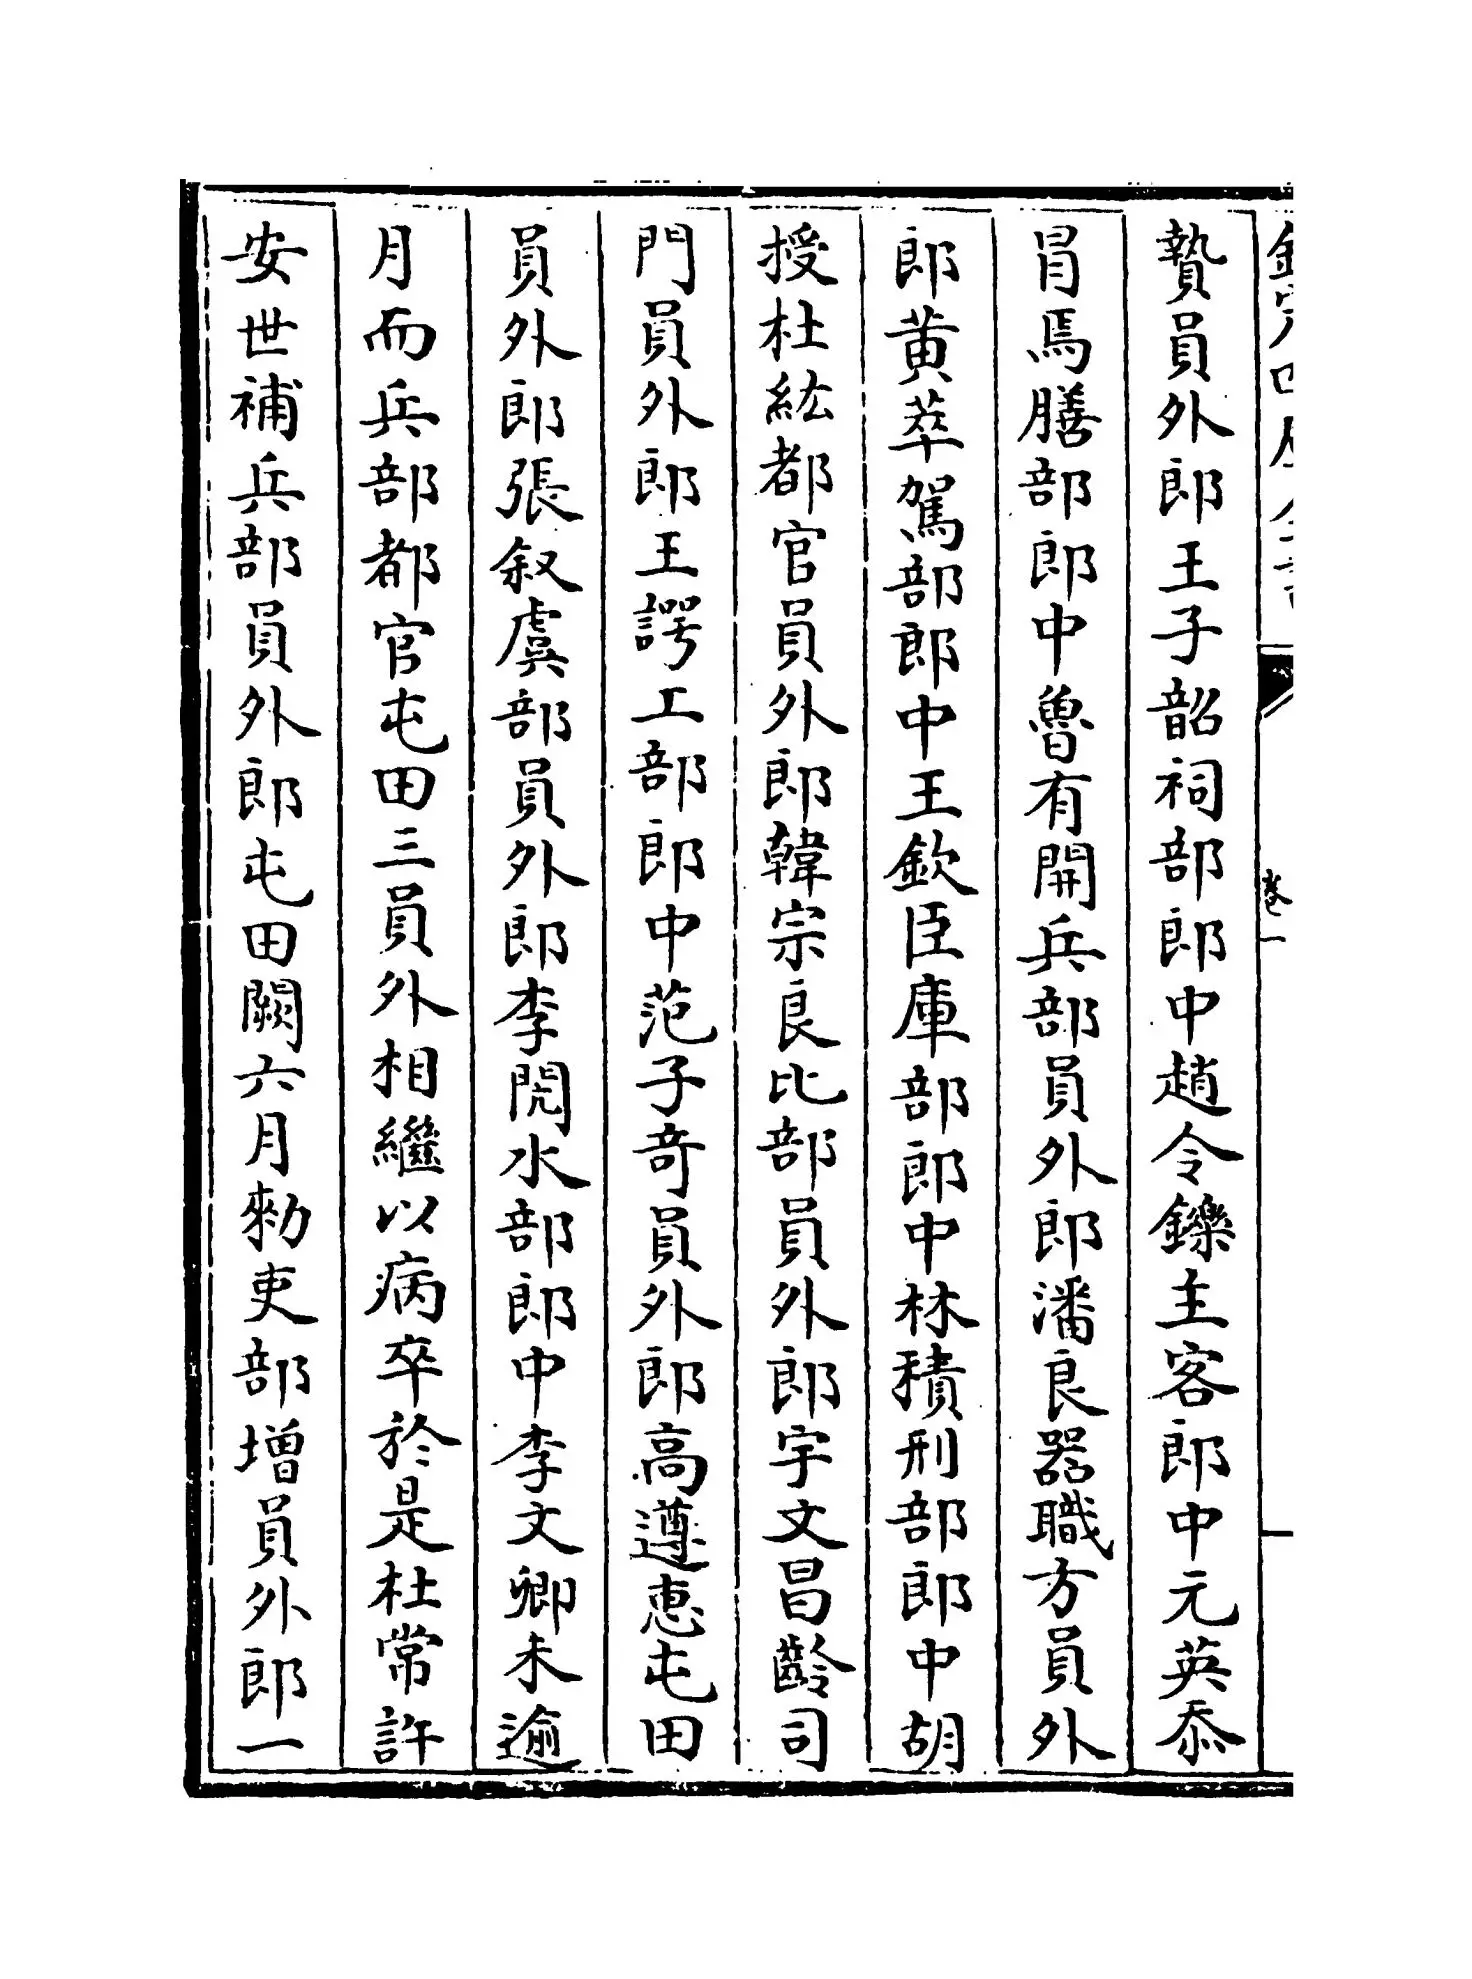 欽定四庫全書
卷一
贄員外郎王子韶祠部郎中趙令鑠主客郎中元英忝
冐焉膳部郎中魯有開兵部員外郎潘良器職方員外
郎黄莘駕部郎中王欽臣庫部郎中林積刑部郎中胡
授杜紘都官員外郎韓宗良比部員外郎宇文昌齡司
門員外郎王諤工部郎中范子奇員外郎高遵惠屯田
員外郎張叙虞部員外郎李閌水部郎中李文卿未逾
月而兵部都官屯田三員外相繼以病卒於是杜常許
安世補兵部員外郎屯田闕六月勑吏部增員外郎一